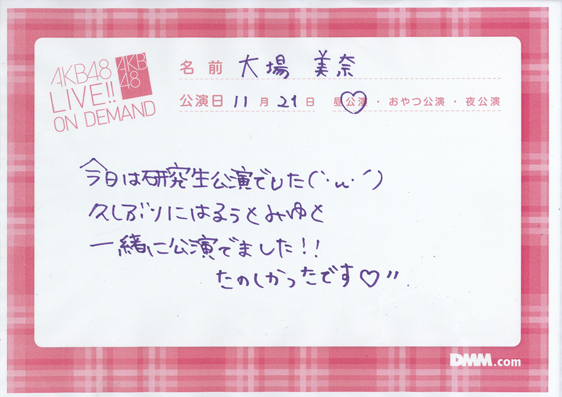 AKB48
LIVE!!
ON DEMAND
AKB
48
名前 大場 美奈
公演日 11月21日 昼公演・おやつ公演・夜公演
今日は研究生公演でした(`･ω･´)
久しぶりにはるぅとみゆと
一緒に公演でました!!
たのしかったです♡〃
DMM.com